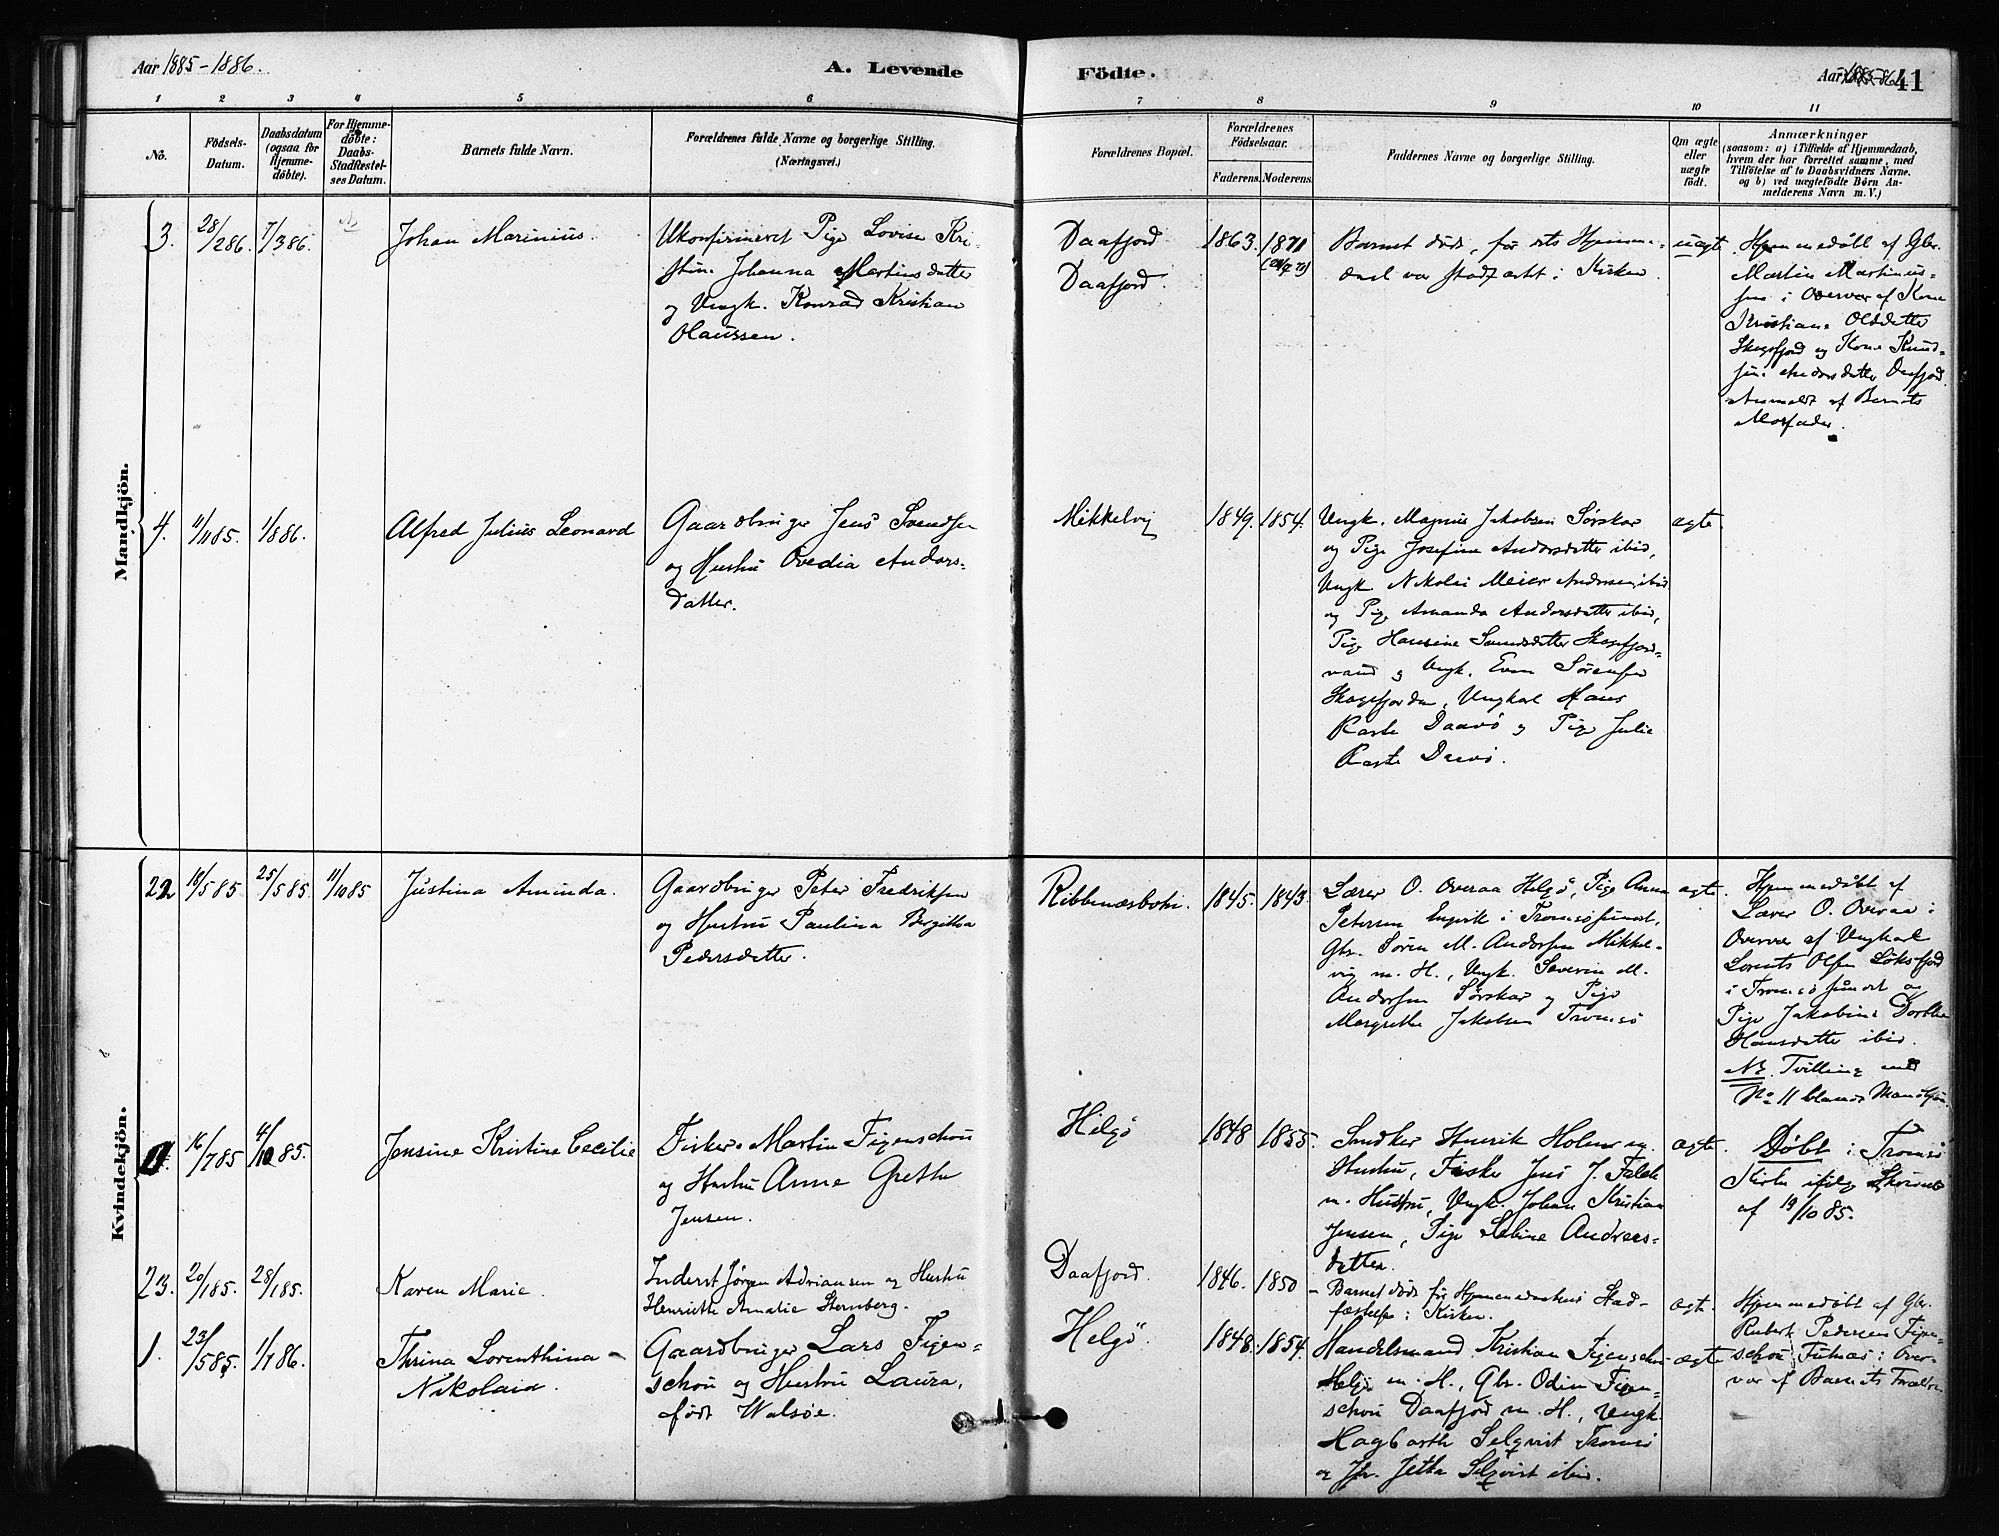 Aar 1885-1886.
A. Levende
Födte.
Aar 1885-86
41
1 2 3 4 5 6 7 8 9 10 11
No.
Födsels-
Datum.
Daabsdatum
(ogsaa for
Hjemme-
döbte).
For Hjemme-
döbte:
Daabs-
Stadfæstel-
ses Datum.
Barnets fulde Navn.
Forældrenes fulde Navne og borgerlige Stilling.
(Næringsvei.)
Forældrenes Bopæl.
Forældrenes
Födselsaar.
Faderens.
Moderens.
Faddernes Navne og borgerlige Stilling.
Om ægte
eller
uægte
födt.
Anmærkninger
(saasom: a) i Tilfælde af Hjemmedaab,
hvem der har forrettet samme, med
Tilföielse af to Daabsvidners Navne.
og b) ved uægtefödte Børn An-
melderens Navn m. V.)
Mandkjön.
3.
28/286.
7/386.
Johan Marinius.
Ukonfirmeret Pige Lovise Kri-
stine Johanna Martinsdatter
og Ungk. Konrad Kristian
Olaussen.
Daafjord
Daafjord.
1863.
1871
Barnet døde, før dets Hjemme-
daab var stadfæstet i Kirken.
uægte
Hjemmedøbt af Gbr.
Martin Martinus-
sen i Overvær af Kone
Kristiane Olsdatter
Skogsfjord og Kone Knud-
sine Andersdatter Daafjord
Anmeldt af Barnets
Morfader.
4.
11/1185.
1/886.
Alfred Julius Leonard
Gaardbruger Jens Svendsen
og Hustru Ovedia Anders-
datter.
Mikkelvig
1849.
1854.
Ungk. Magnus Jakobsen Sørskar
og Pige Josefine Andersdatter ibid,
Ungk. Nikolai Meier Andersen ibid
og Pige Amanda Andersdatter ibid,
Pige Hansine Svendsdatter Skogsfjord-
vand og Ungk. Even Sørensen
Skogsfjorden, Ungkarl Hans
Karste Daavø og Pige Julie
Karste Daavø.
ægte.
Kvindekjön.
22
19/585.
25/585.
11/1085
Justina Aminda.
Gaardbruger Peter Fredriksen
og Hustru Paulina Birgitta
Pedersdatter.
Ribbenæsbotn.
1845.
1843.
Lærer O. Overaa Helgø, Pige Anna
Petersen Engvik i Tromsøsundet,
Gbr. Søren M. Andersen Mikkel-
vig m. H., Ungk. Severin M.
Andersen Sørskar og Pige
Margrethe Jakobsen Tromsø
ægte.
Hjemmedøbt af
Lærer O. Overaa i
Overvær af Ungkarl
Lorents Olsen Løksfjord
i Tromsøsundet og
Pige Jakobine Dorthea
Hansdatter ibid.
NB. Tvilling med
No 11 blandt Mandkjøn.
16/785
4/1085.
Jensine Kristine Cecilie
Fisker Martin Figenschou
og Hustru Anne Grethe
Jensen.
Helgø
1848
1855.
Smed Henrik Holmer m.
Hustru, Fisker Jens J. Falch
m. Hustru, Ungk. Johan Kristian
Jensen, Pige Sabine Andreas-
datter.
ægte.
Døbt i Tromsø
Kirke ifølge Skrivelse
af 19/1085.
23.
20/185.
28/185.
Karen Marie.
Inderst Jørgen Adriansen og Hustru
Henriette Amalie Sternberg.
Daafjord.
1846.
1850
- Barnet døde før Hjemmedaabens Stad-
fæstelse i Kirken.
ægte.
1.
23/585.
1/186.
Thrina Lorenthina
Nikolaia.
Gaardbruger Lars Figen-
schou og Hustru Laura,
født Walsøe.
Helgø.
1848.
1854.
Handelsmand Kristian Figenschou
Helgø m. H., Gbr. Odin Figen-
schou Daafjord m. H., Ungk.
Hagbarth Selqvist Tromsø
og Jfr. Jetha Selqvist ibid.
ægte
Hjemmedøbt af Gbr.
Rubert Pedersen Figen-
schou Futnæs i Over-
vær af Barnets Forældre.